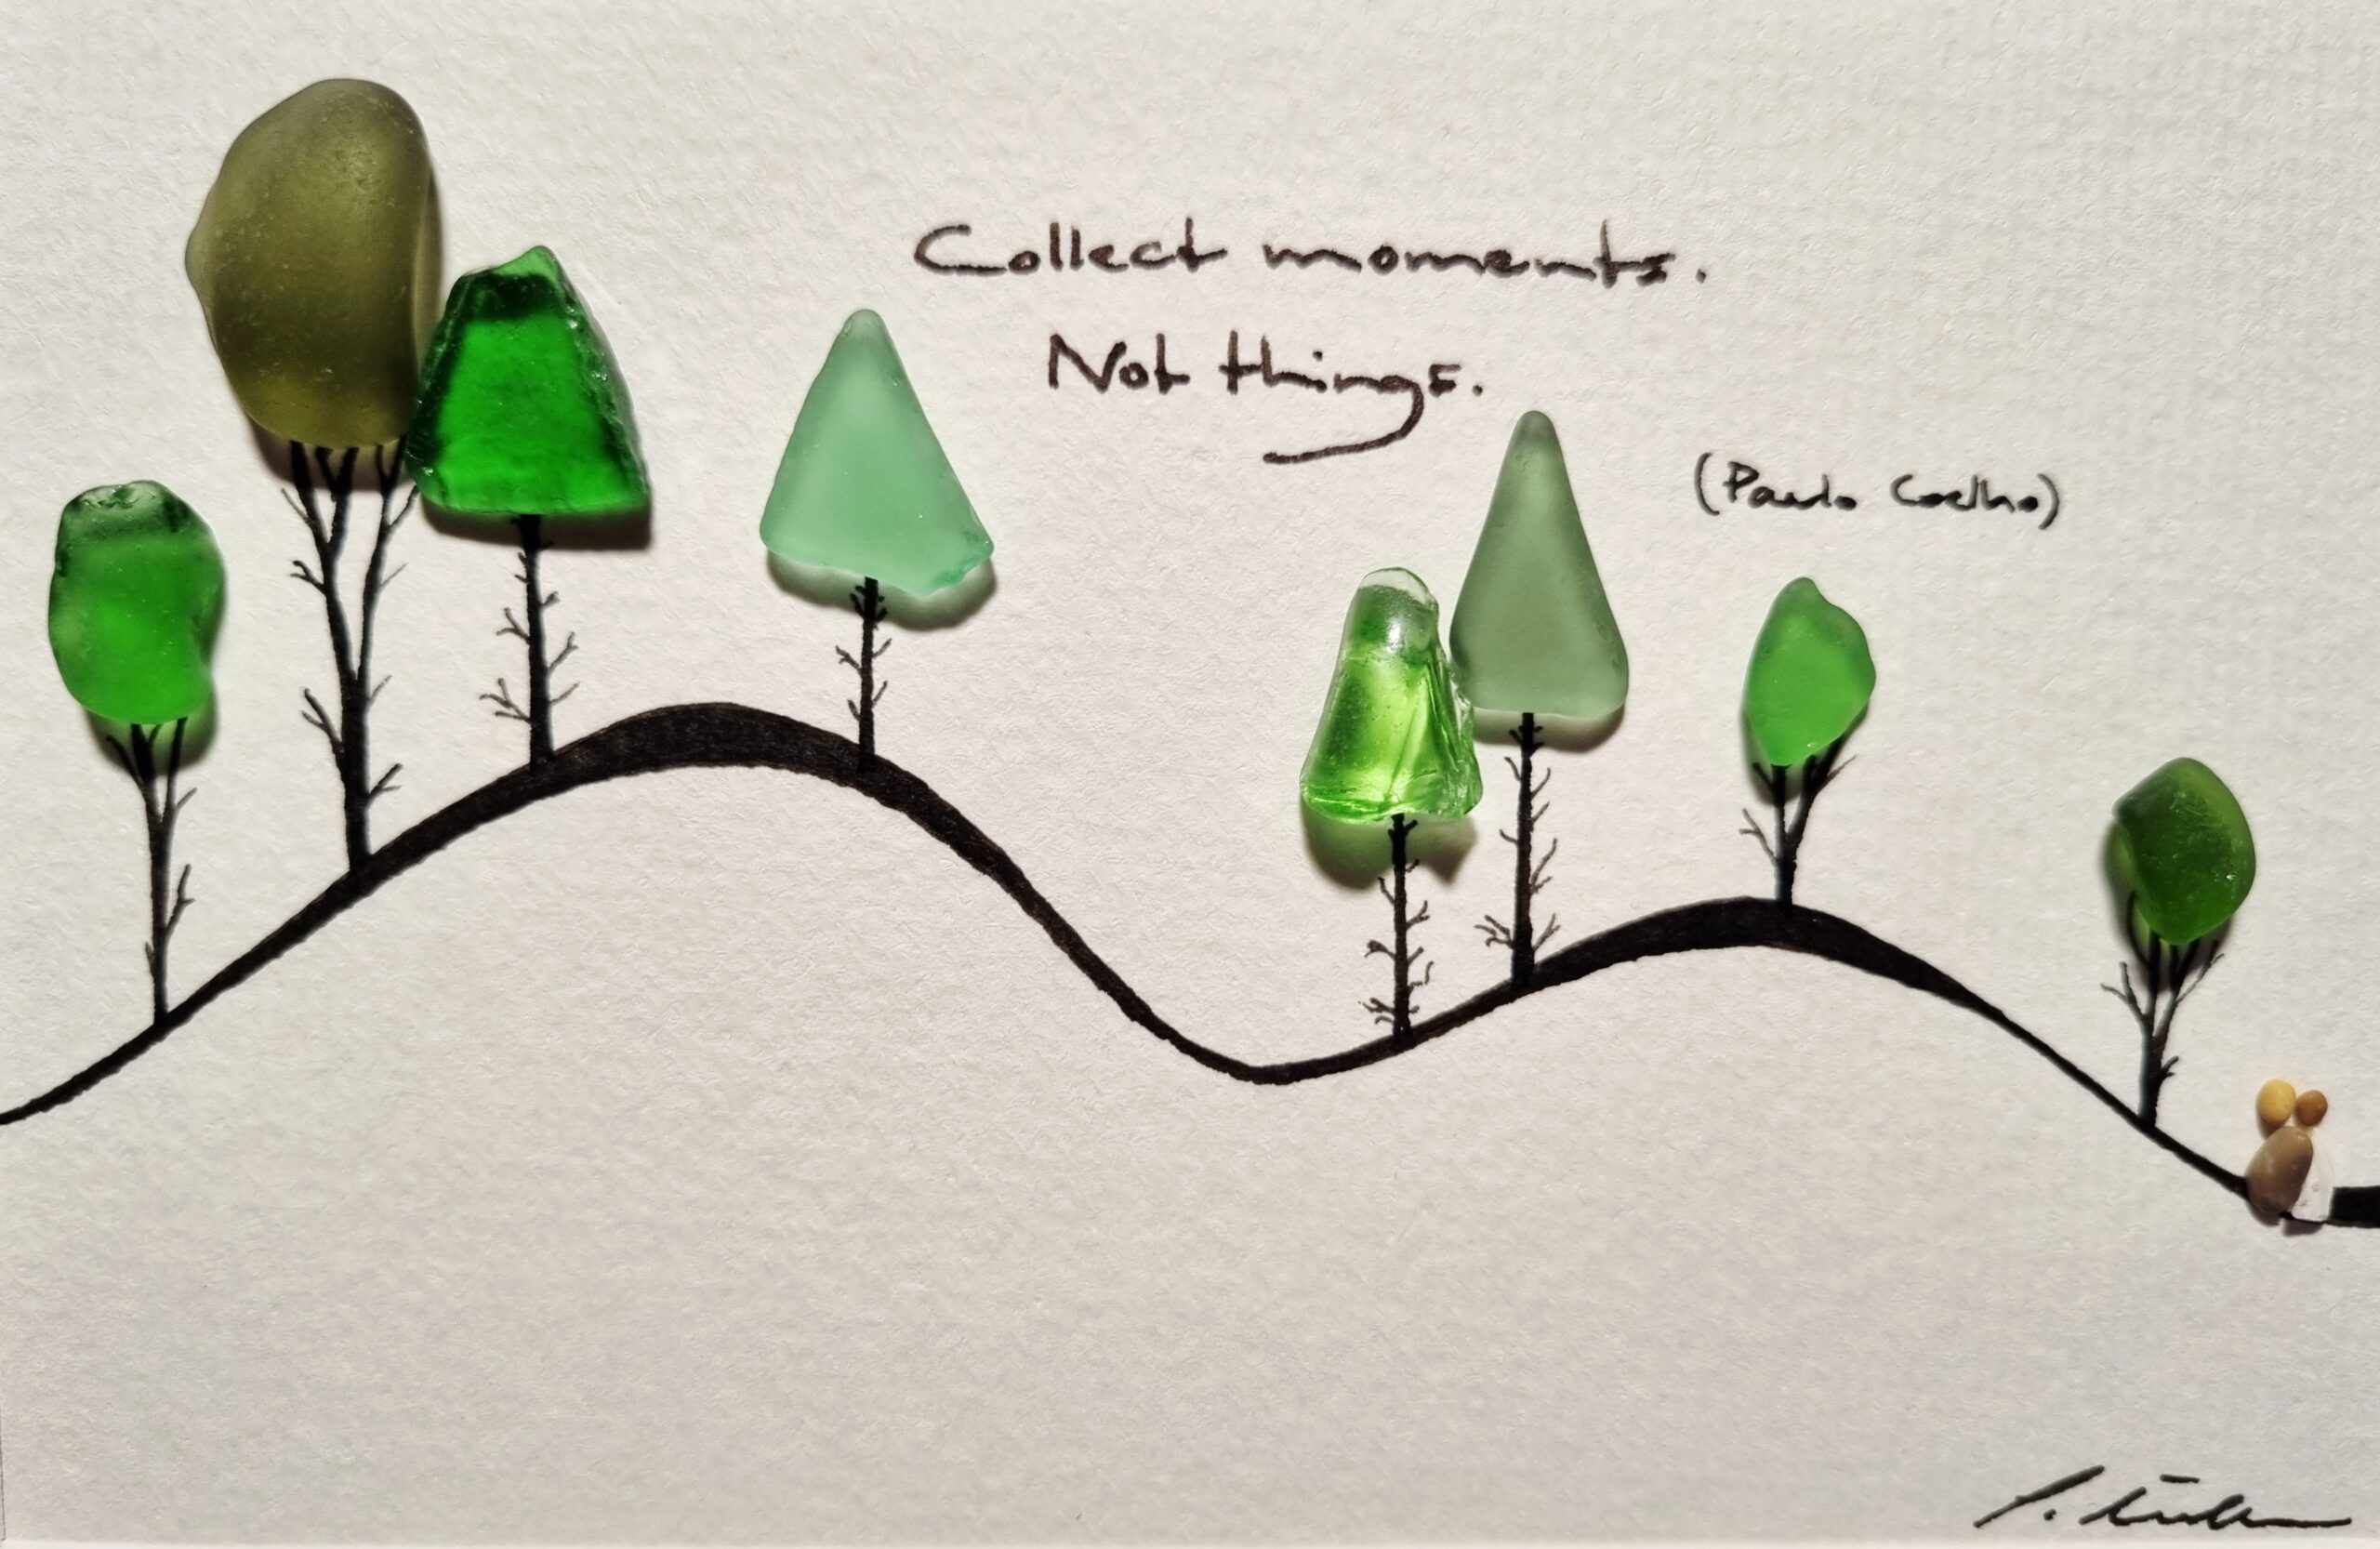 Collect moments.
Not things.
(Paulo Coelho)